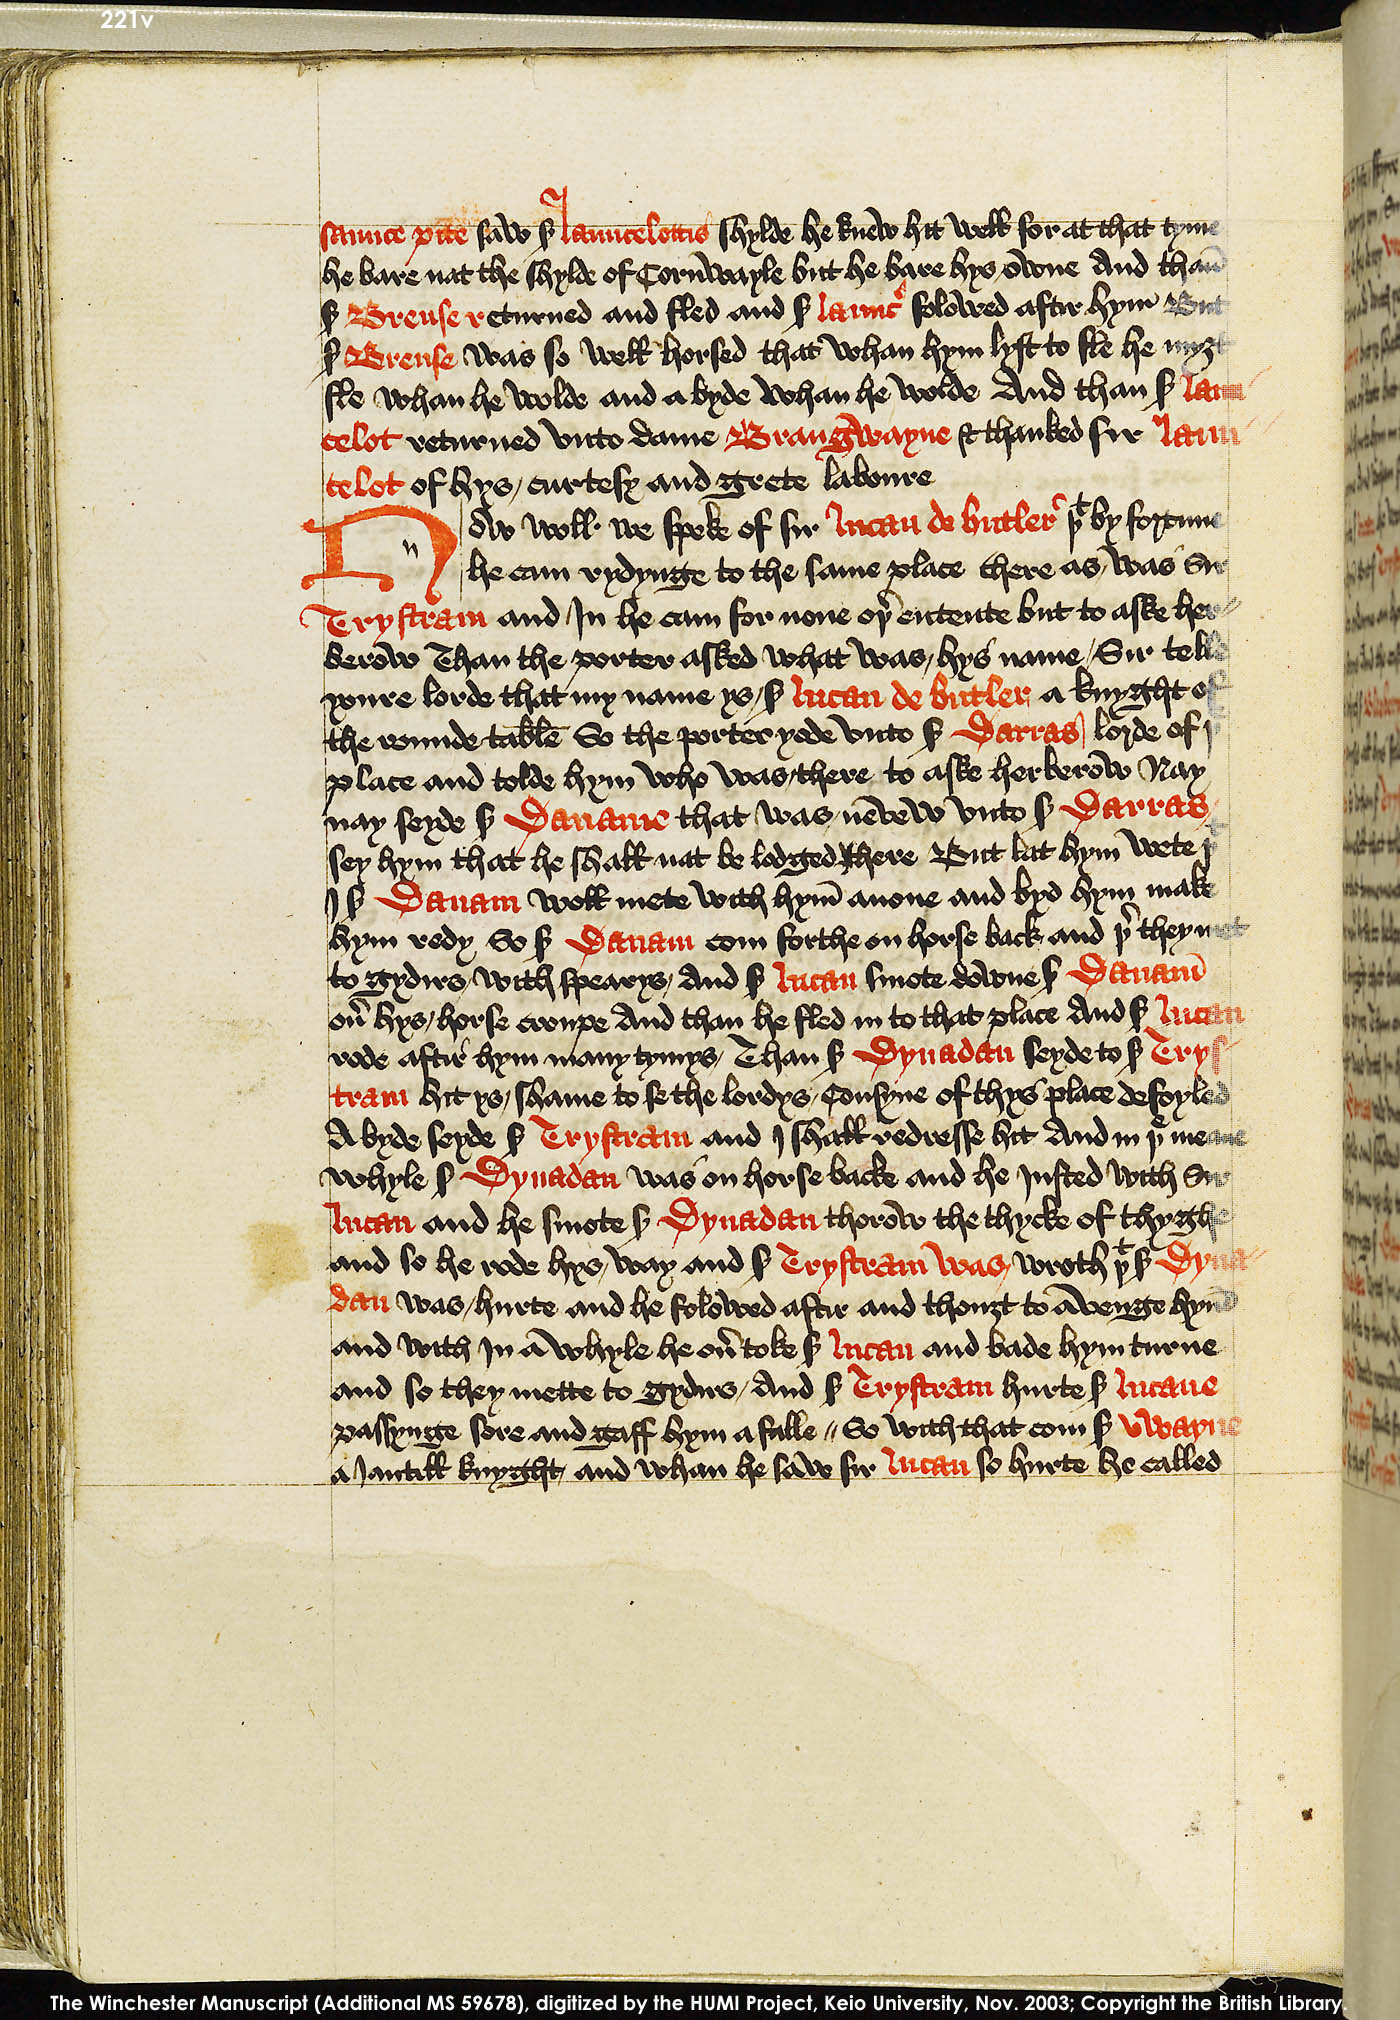 221v
saunce pite saw sr launcelottis shylde he knew hit well for at that tyme
he bare nat the shylde of Cornwayle but he bare hys owne And than
sr Breuse returned and fled and sr launc folowed aftir hym But
sr Breuse was so well horsed that whan hym lyst to fle he myȝt
fle whan he wolde and a byde whan he wolde And than sr laun
celot returned vnto dame Brangwayne & thanked sir laun
celot of hys curtesy and grete laboure
Now woll we speke of sir lucan de butler þt by fortune
he cam rydynge to the same place there as was Sir
Trystram and In he cam for none oþr entente but to aske her
berow Than the porter asked what was hys name Sir telle
youre lorde that my name ys sr lucan de butler a knyght of
the rounde table So the porter yode vnto sr Darras lorde of þe
place and tolde hym who was there to aske herberow Nay
nay seyde sr Daname that was nevew vnto sr Darras
sey hym that he shall nat be lodged here But lat hym wete þt
I sr Danam woll mete with hym anone and byd hym make
hym redy So sr Danam com forthe on horse back and þr they met
to gydirs with spearys And sr lucan smote downe sr Danam
ou hys horse croupe And than he fled in to that place And sr lucan
rode aftir hym many tymys Than sr Dynadan seyde to sr Trys
tram hit ys shame to se the lordys Cousyne of thys place defoyled
A byde seyde sr Trystram and I shall redresse hit And in þe meane
whyle sr Dynadan was on horse backe and he Iusted with Sir
lucan and he smote sr Dynadan thorow the thycke of thyghe
and so he rode hys way and sr Trystram was wroth þt sr Dyna
dan was hurte and he folowed aftir and thouȝt to avenge hym
and with In a whyle he ou toke sr lucan and bade hym turne
and so they mette to gydirs And sr Trystram hurte sr lucane
passynge sore and gaff hym a falle // So with that com sr vwayne
a Iantill knyght and whan he saw sir lucan so hurte he called
The Winchester Manuscript (Additional MS 59678), digitized by the HUMI Project, Keio University, Nov. 2003; Copyright the British Library.